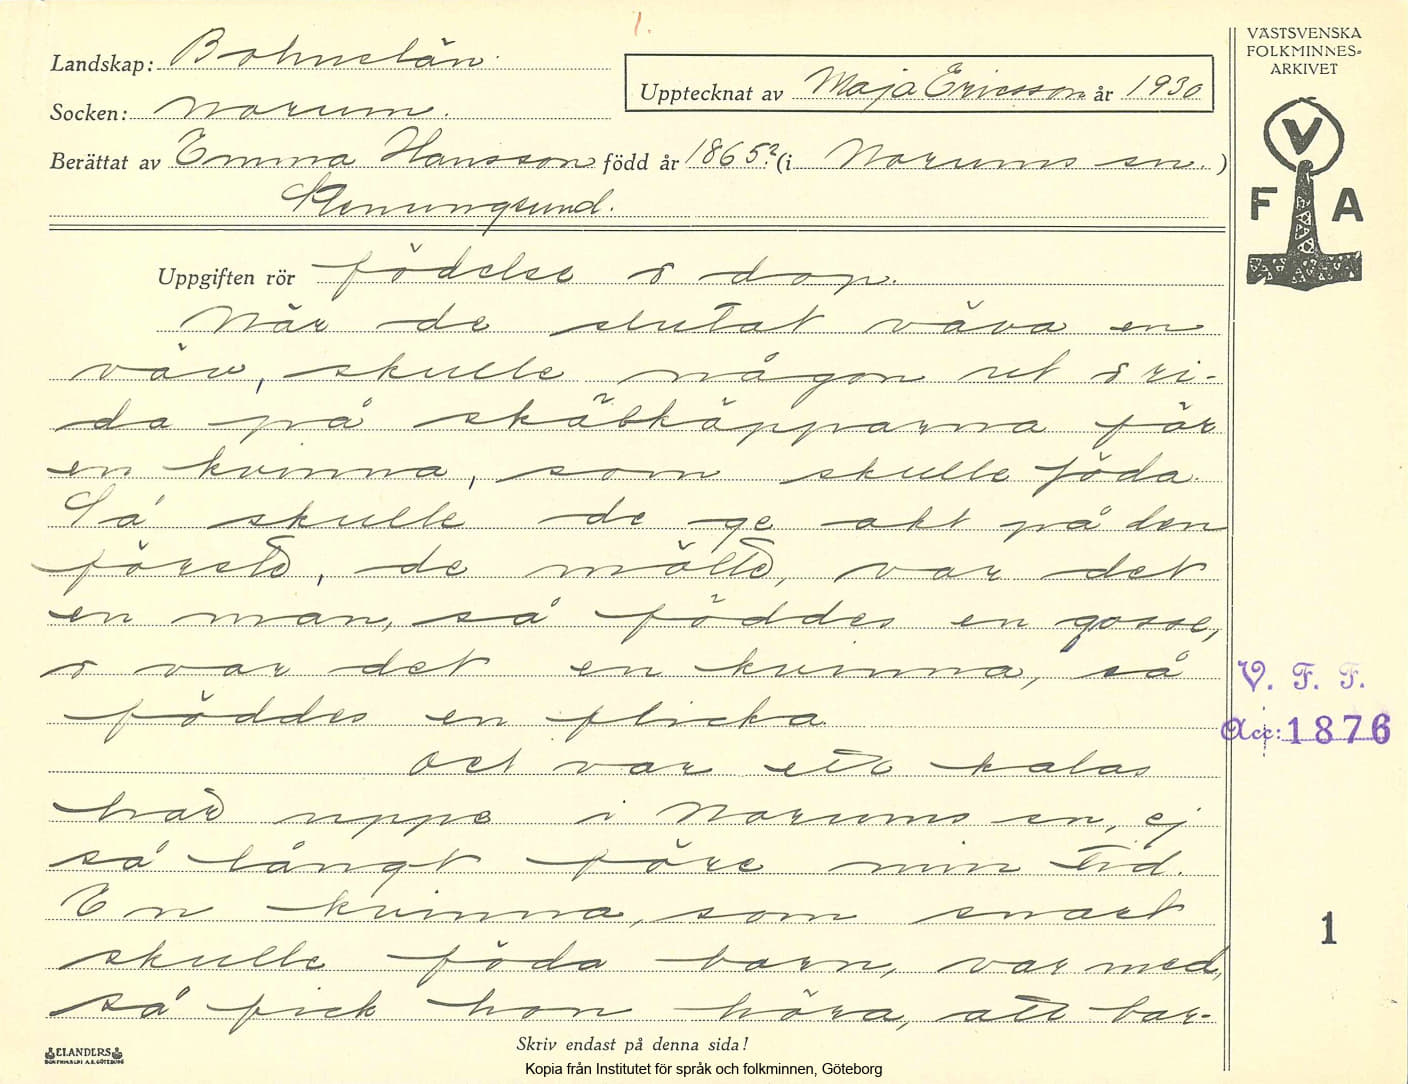 1.
Landskap: Bohuslän.
Socken: Norum.
Upptecknat av Maja Ericsson år 1930
Berättat av Emma Hansson född år 1865? (i Norums sn.)
Stenungsund.
VÄSTSVENSKA
FOLKMINNES-
ARKIVET
V
F A
Uppgiften rör födelse & dop.
När de slutat väva en
väv, skulle någon ut & ri-
da på skälkäpparna för
en kvinna, som skulle föda.
Så skulle de ge akt på den
förste, de mötte, var det
en man, så föddes en gosse,
& var det en kvinna, så
föddes en flicka.
Det var ett kalas
här uppe i Norums sn, ej
så långt före min tid.
En kvinna, som snart
skulle föda barn, var med,
så fick hon höra, att bar-
V. F. F.
Acc: 1876
1
Skriv endast på denna sida!
ELANDERS
BOKTRYCKERI A.B. GÖTEBORG
Kopia från Institutet för språk och folkminnen, Göteborg